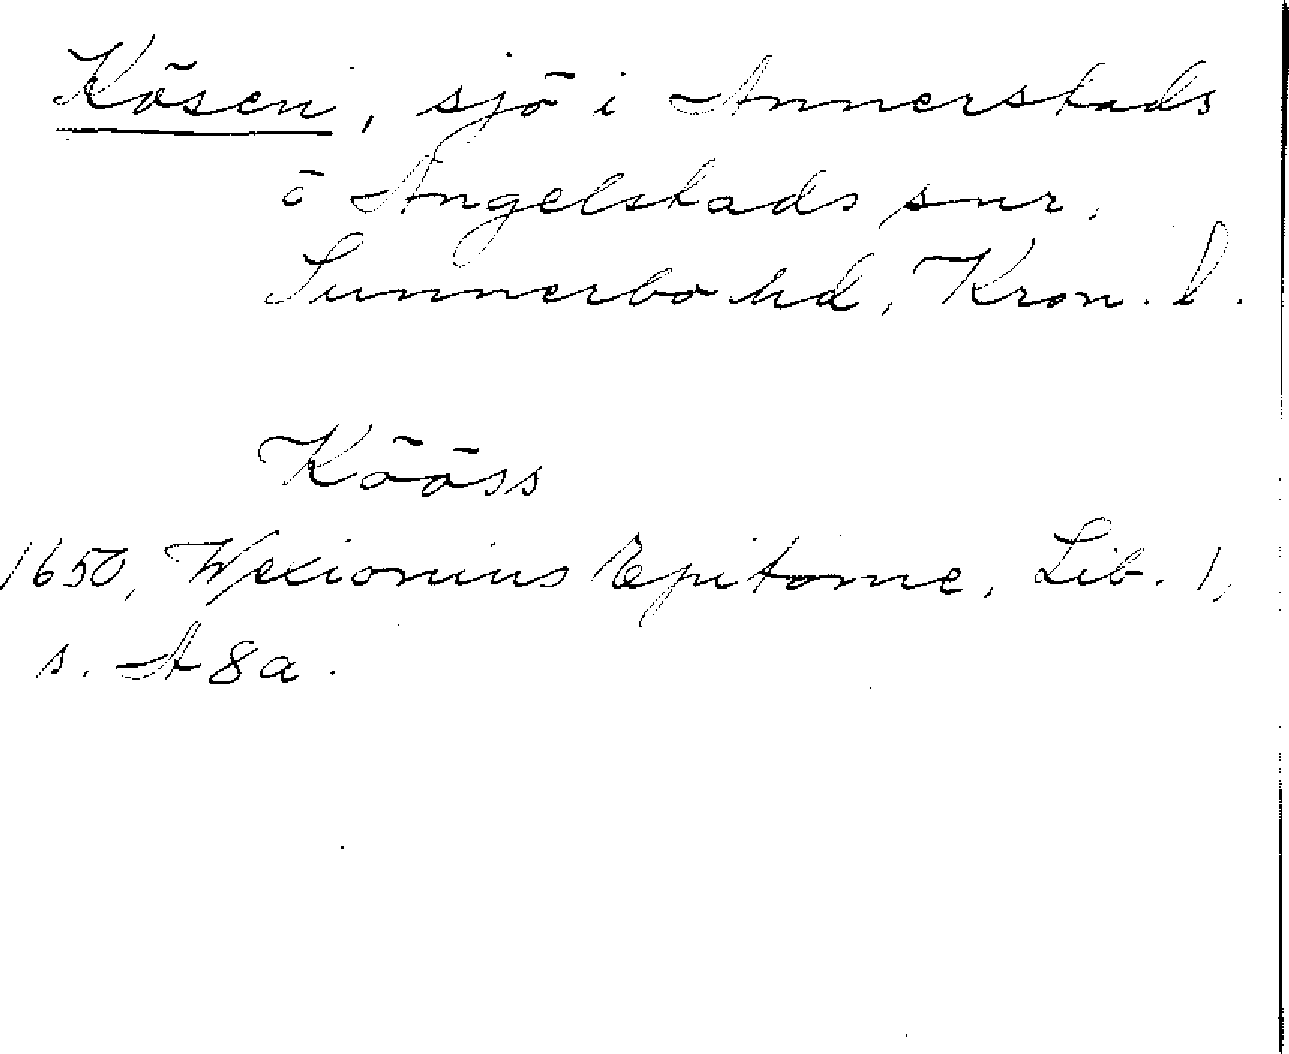 Kösen, sjö i Annerstads
o Angelstads snr,
Sunnerbo hd, Kron. l.
Kööss
1650, Wexionius Epitome, Lib. 1,
s. A 8a.